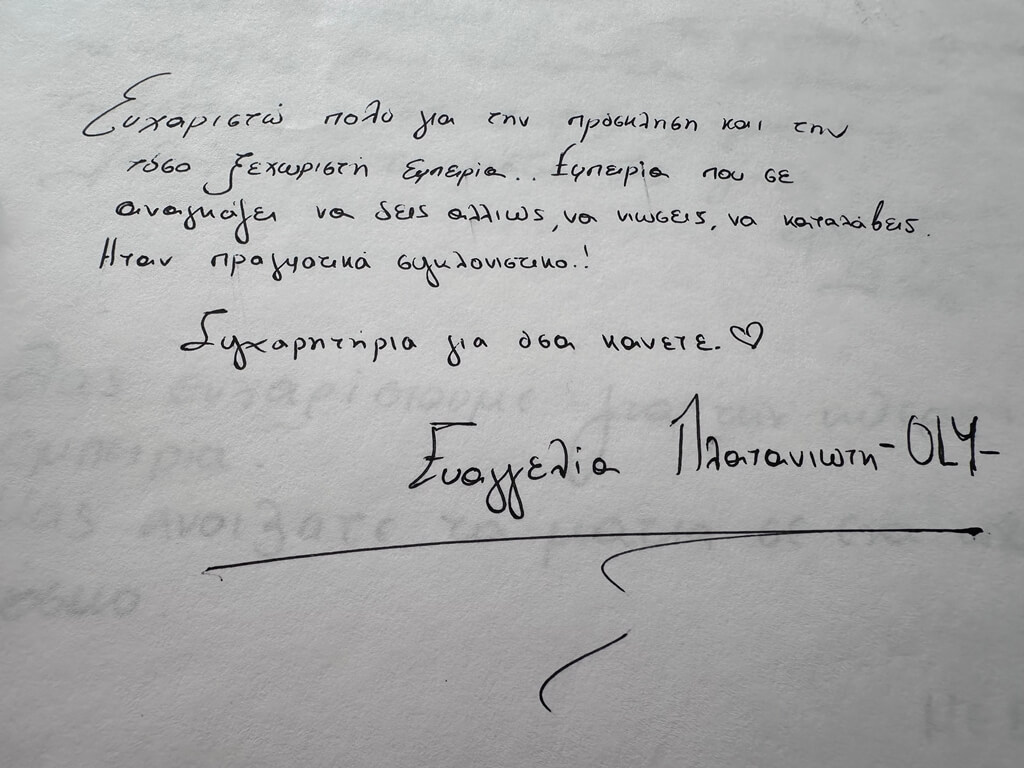 Ευχαριστώ πολύ για την πρόσκληση και την
τόσο ξεχωριστή εμπειρία.. Εμπειρία που σε
αναγκάζει να δεις αλλιώς, να νιώσεις, να καταλάβεις.
Ήταν πραγματικά συγκλονιστικό.!
Συγχαρητήρια για όσα κάνετε. ♡
Ευαγγελία Πλατανιώτη -OLY-